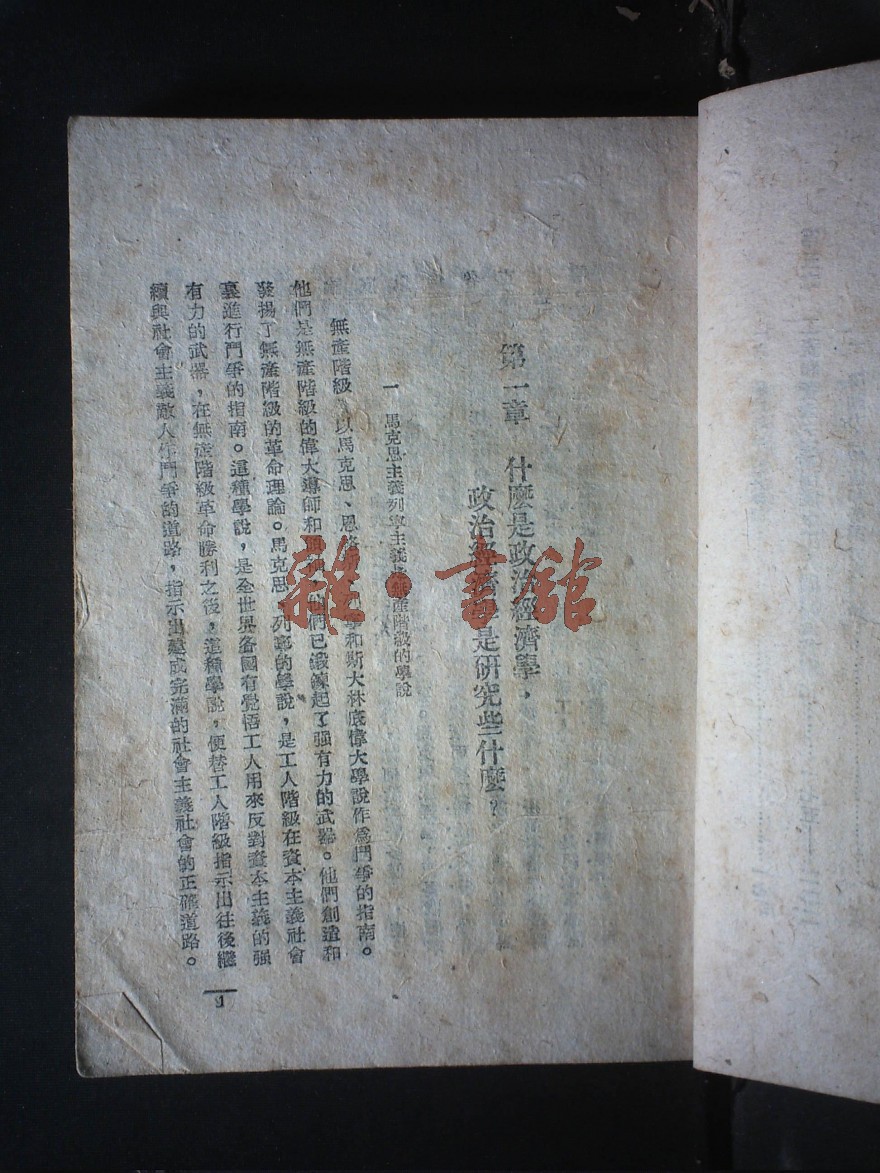 第一章　什麼是政治經濟學，
政治經濟學是研究些什麼？
一　馬克思主義列寧主義是無產階級的學說
無產階級，以馬克思、恩格斯、和斯大林底偉大學說作為鬥爭的指南。
他們是無產階級的偉大導師和領袖。他們已鍛鍊起了强有力的武器。他們創造和
發揚了無產階級的革命理論。馬克思　列寧的學說，是工人階級在資本主義社會
裏進行鬥爭的指南。這種學說，是全世界各國有覺悟工人用來反對資本主義的强
有力的武器，在無產階級革命勝利之後，這種學說，便替工人階級指示出往後繼
續與社會主義敵人作鬥爭的道路，指示出建成完滿的社會主義社會的正確道路。
1
雜·書館